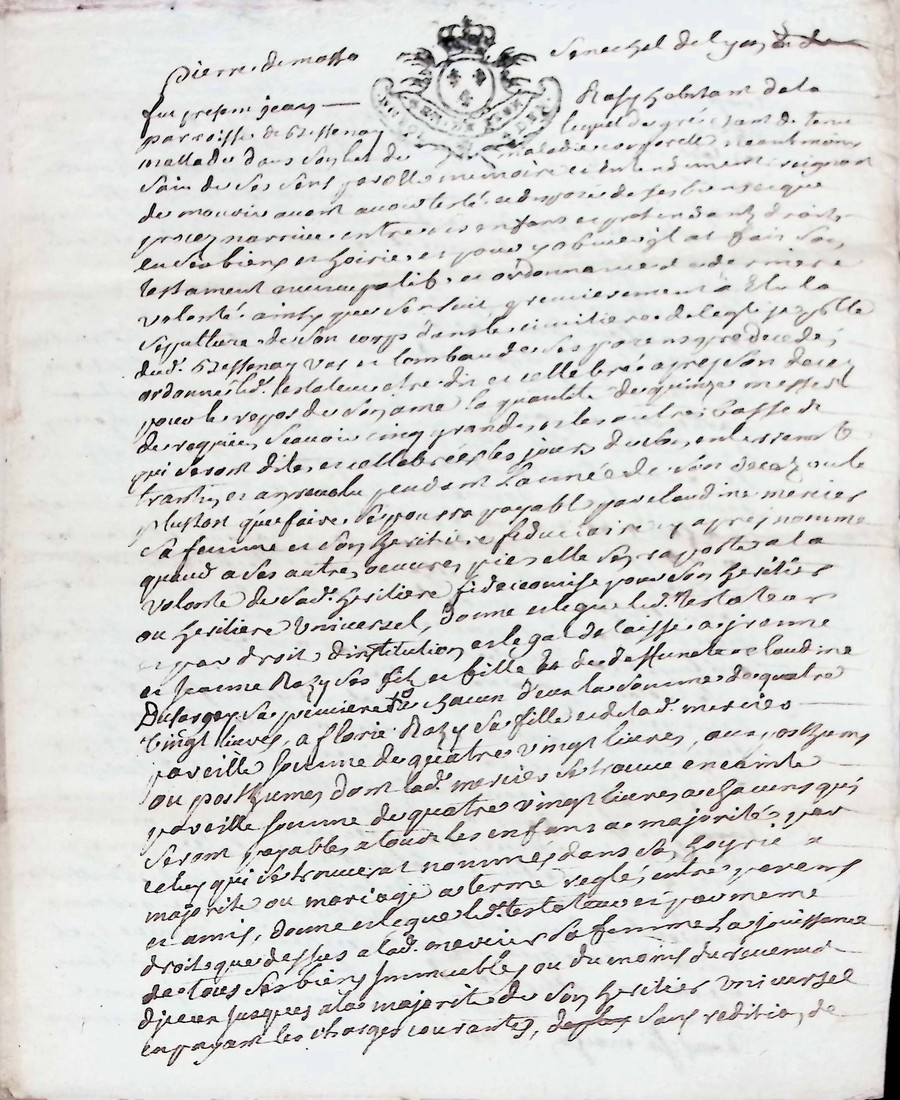 pierre de masso Senechal de lyon
fut present jean Razy habitant de la
parroisse de Bessenay lequel de gré étant detenu
mallade dans son lict de maladie corporelle neantmoins
sain de ses sens parolle memoire et entendement craignant
de mourir avant avoir testé et disposé de ses biens et que
procez narrive entre ses enfans et pretendantz droits
en ses biens et hoirie et pour y obvier il at fait son
testament nuncupatif et ordonnance de derniere
volonté ainsy que sensuit, premierement a Elu la
sepulture de son corps dans le cimittiere de leglize
dud. Bessenay vas et tombau de ses parens predecedés
ordonne led. testateur etre dit et cellebré apres son decez
pour le repos de son ame la quantité de quinze messes
de requiem scavoir cinq grandes et les autres basses
qui seront dites et cellebrées les jours dobit, enterremt
trantin et an revolu pendant lannée de son decez ou le
plustot que faire se pourra payable par claudine mercier
sa femme et son heritiere fiduciaire cy apres nommé
quand a ses autres oeuvres pies elle sen raporte a la
volonté de sad. heritiere fideicomise pour son heritier
ou heritiere Universel, donne et legue led. testateur
et par droit dinstitution et legat delaisse a
et Jeanne Razy ses fils et fille et de deffuncte claudine
Dufargey sa premiere fe a chacun deux la somme de quatre
vingt livres, a florie Razy sa fille et de lad. mercier
pareille somme de quatre vingt livres, au posthume
ou posthumes dont lad. mercier se trouve enceinte
pareille somme de quatre vingt livres a chacun qui
seront payables a tous les enfans a majorité par
celuy qui se trouverat nommé dans sa hoyrie a
majorité ou mariage a terme reglé entre parens
et amis, donne et legue led. testateur et par meme
droit que dessus a lad. mercier sa femme La jouissance
de tous ses biens Immeubles ou du moins du revenu
dyceux jusques a la majorité de son heritier universel
en payant les charges courantes, sans reddition de